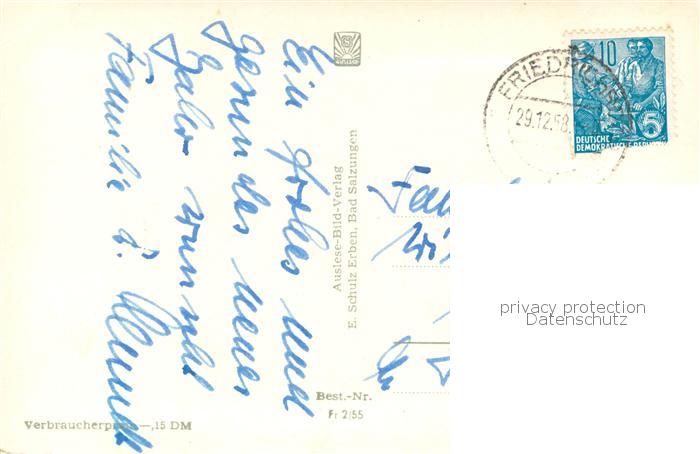 Ein frohes und
gesundes neues
Jahr wünscht
Familie
Auslese-Bild-Verlag
E. Schulz Erben, Bad Salzungen
Best.-Nr.
Fr 2/55
Verbraucherpreis —,15 DM
29.12.58
10
5
DEUTSCHE
DEMOKRATISCHE REPUBLIK
Fam
privacy protection
Datenschutz